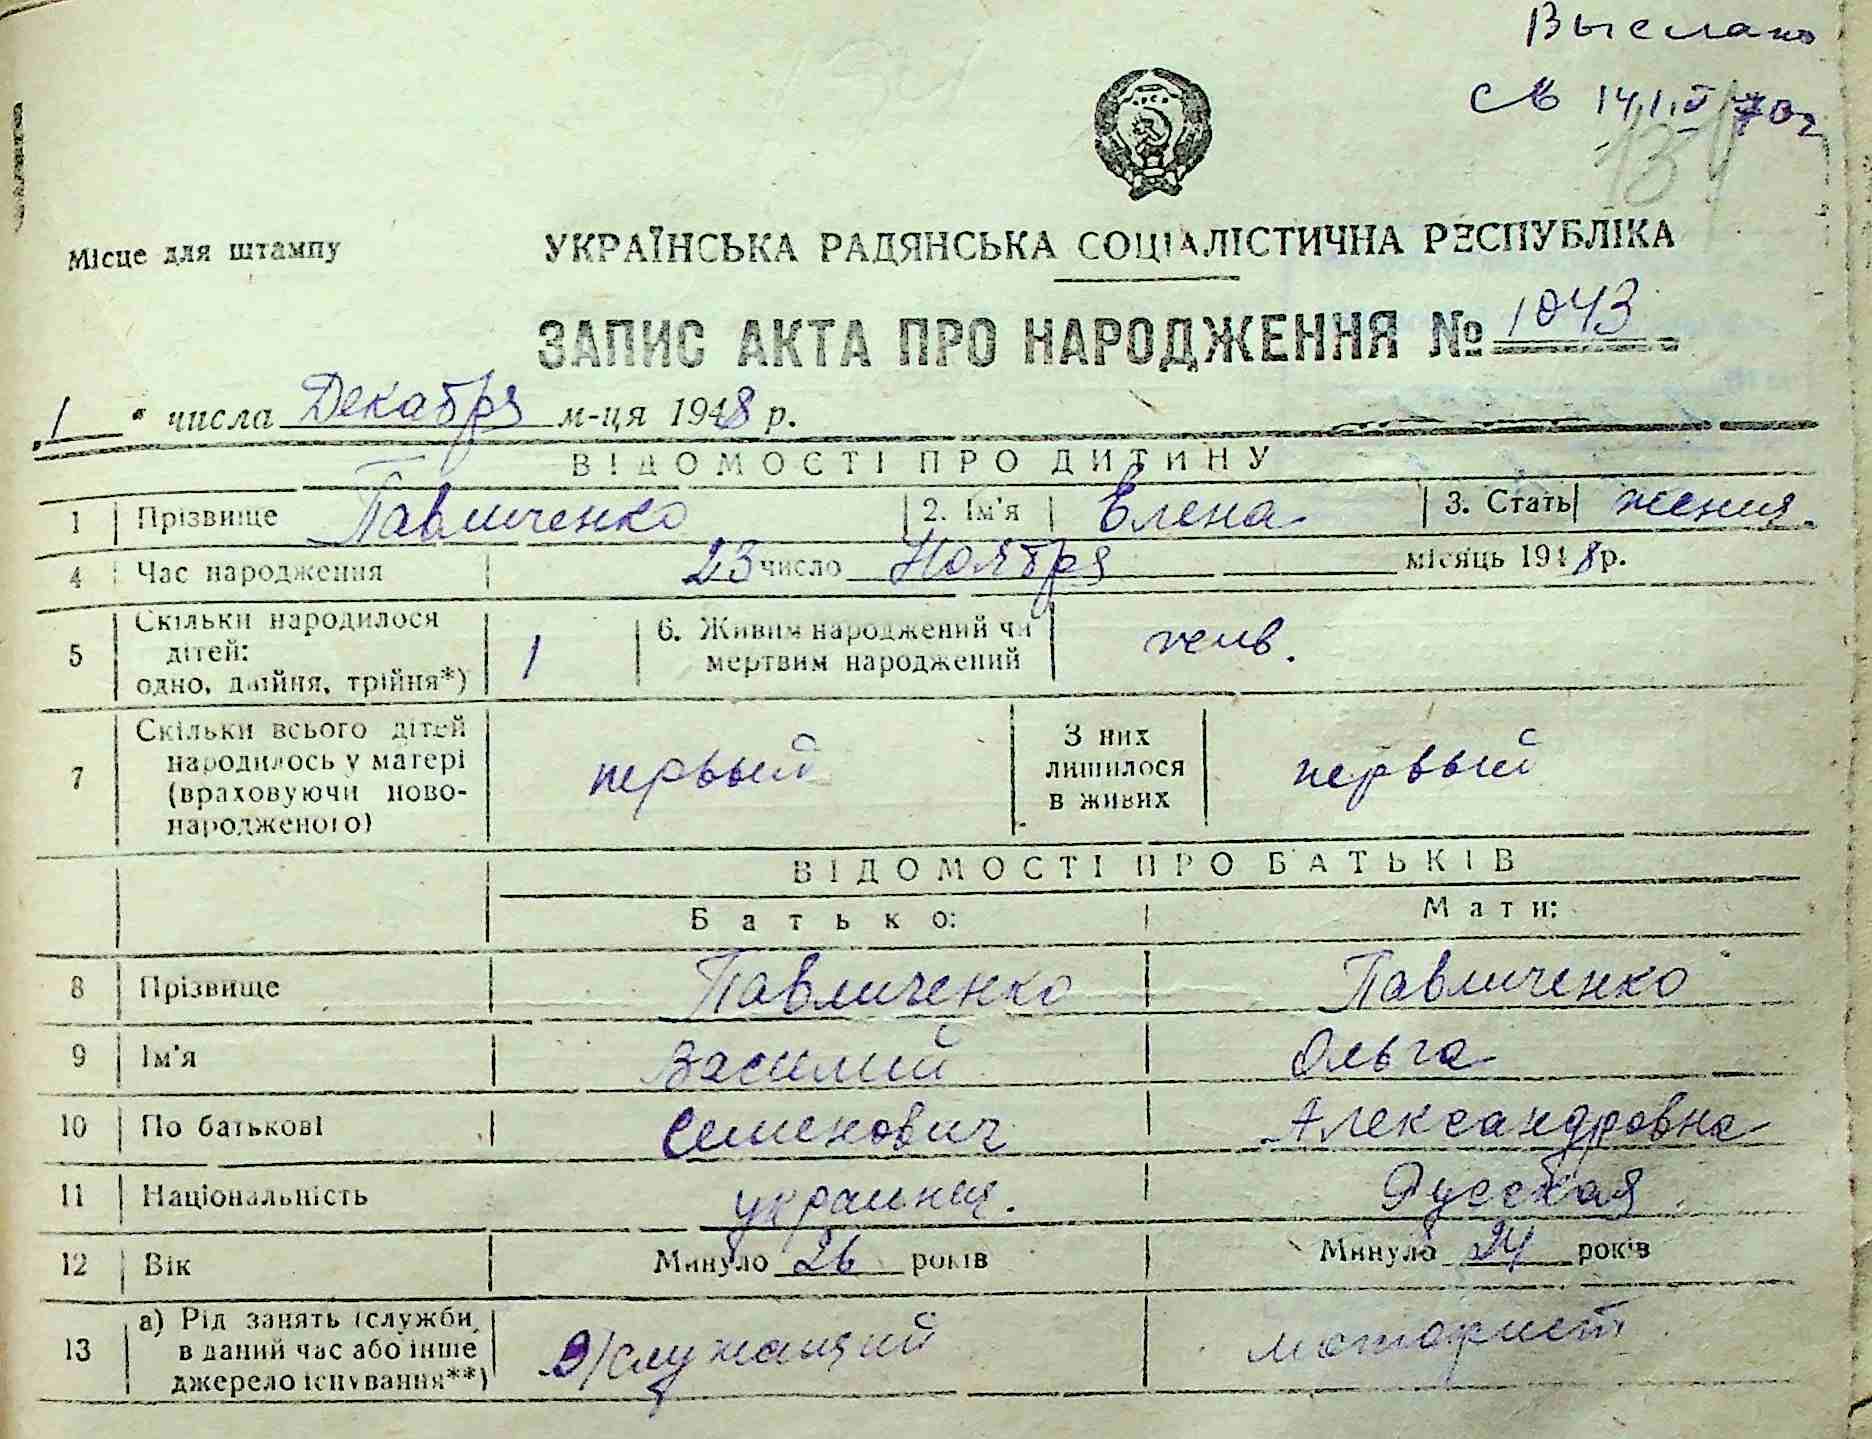 Выслано
св 14.I. 70г
134
Місце для штампу
УКРАЇНСЬКА РАДЯНСЬКА СОЦІАЛІСТИЧНА РЕСПУБЛІКА
ЗАПИС АКТА ПРО НАРОДЖЕННЯ № 1043
„1" числа Декабря м-ця 1948 р.
ВІДОМОСТІ ПРО ДИТИНУ
1 Прізвище Павличенко 2. Ім'я Елена 3. Стать женщ.
4 Час народження 23 число Ноября місяць 1948 р.
5 Скільки народилося дітей: одно, двійня, трійня*) 1 6. Живим народжений чи мертвим народжений жив.
7 Скільки всього дітей народилось у матері (враховуючи ново-народженого) первый З них лишилося в живих первый
ВІДОМОСТІ ПРО БАТЬКІВ
Батько: Мати:
8 Прізвище Павличенко Павличенко
9 Ім'я Василий Ольга
10 По батькові Семенович Александровна
11 Національність украинец. Русская
12 Вік Минуло 26 років Минуло 24 років
13 а) Рід занять (служби в даний час або інше джерело існування**) служащий моторист